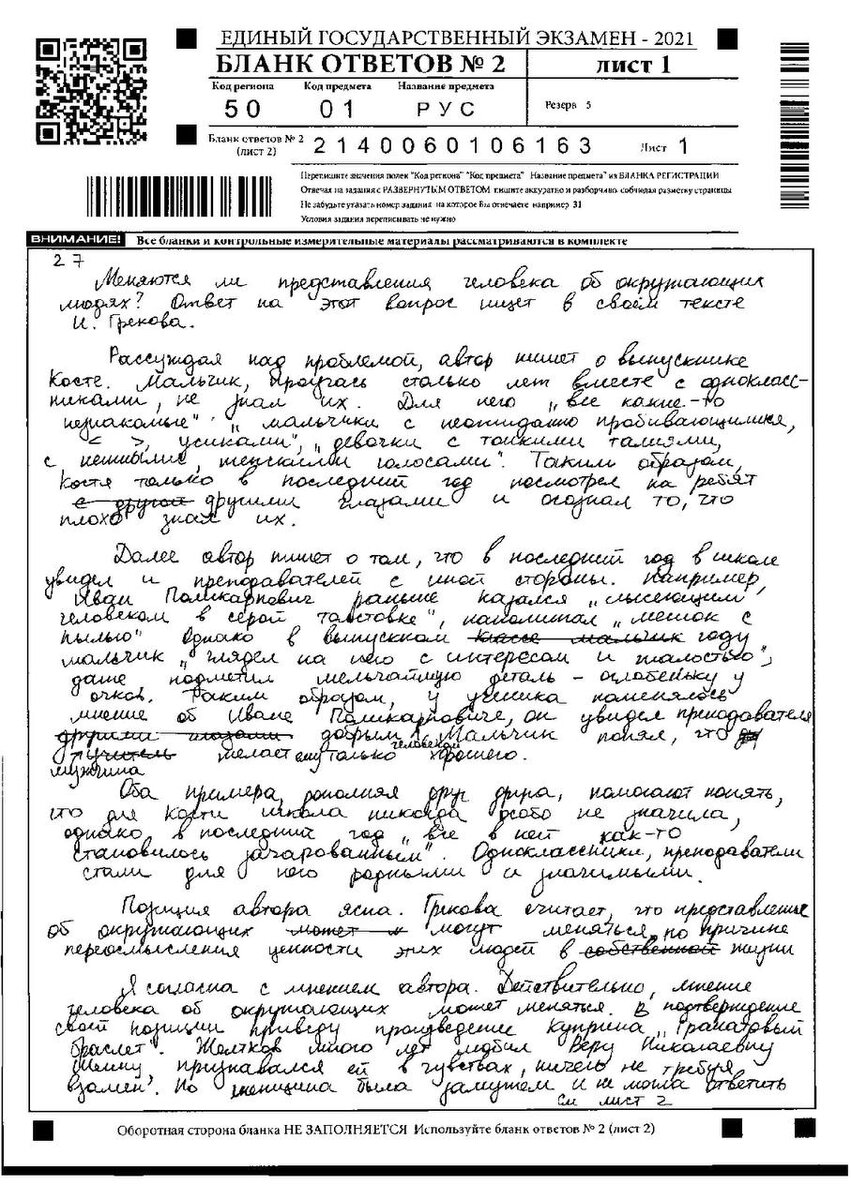 ЕДИНЫЙ ГОСУДАРСТВЕННЫЙ ЭКЗАМЕН - 2021
БЛАНК ОТВЕТОВ № 2
лист 1
Код региона Код предмета Название предмета
50 01 РУС
Резерв 5
Бланк ответов № 2 (лист 2)
2140060106163
Лист 1
Перепишите значения полей "Код региона" "Код предмета" "Название предмета" из БЛАНКА РЕГИСТРАЦИИ
Отвечая на задания с РАЗВЕРНУТЫМ ОТВЕТОМ пишите аккуратно и разборчиво соблюдая разметку страницы
Не забудьте указать номер задания на которое Вы отвечаете например 31
Условия задания переписывать не нужно
ВНИМАНИЕ! Все бланки и контрольные измерительные материалы рассматриваются в комплекте
27
Меняются ли представления человека об окружающих
людях? Ответ на этот вопрос ищет в своём тексте
И. Грекова.
Рассуждая над проблемой, автор пишет о выпускнике
Косте. Мальчик, проучась столько лет вместе с однокласс-
никами, не знал их. Для него „все какие-то
незнакомые" „мальчики с неожиданно пробивающимися,
< >, усиками", „девочки с тонкими талиями,
с нежными, женскими голосами". Таким образом,
Костя только в последний год посмотрел на ребят
с другой другими глазами и осознал то, что
плохо знал их.
Далее автор пишет о том, что в последний год в школе
увидел и преподавателей с иной стороны. Например,
Иван Поликарпович раньше казался „лысеющим
человеком в серой толстовке", напоминал „мешок с
пылью" Однако в выпускном классе мальчик году
мальчик „глядел на него с интересом и жалостью",
даже подметил мельчайшую деталь - оглобельку у
очков. Таким образом, у ученика поменялось
мнение об Иване Поликарповиче, он увидел преподавателя
другими глазами добрым человеком. Мальчик понял, что
учитель мужчина желает ему только хорошего.
Оба примера, дополняя друг друга, помогают понять,
что для Кости школа никогда особо не значила,
однако в последний год „все в ней как-то
становилось зачарованным". Одноклассники, преподаватели
стали для него родными и значимыми.
Позиция автора ясна. Грекова считает, что представление
об окружающих может и могут меняться по причине
переосмысления ценности этих людей в собственной жизни
Я согласна с мнением автора. Действительно, мнение
человека об окружающих может меняться. В подтверждение
своей позиции приведу произведение Куприна „Гранатовый
браслет". Желтков много лет любил Веру Николаевну
Шеину, признавался ей в чувствах, ничего не требуя
взамен. Но женщина была замужем и не могла ответить
см лист 2
Оборотная сторона бланка НЕ ЗАПОЛНЯЕТСЯ Используйте бланк ответов № 2 (лист 2)